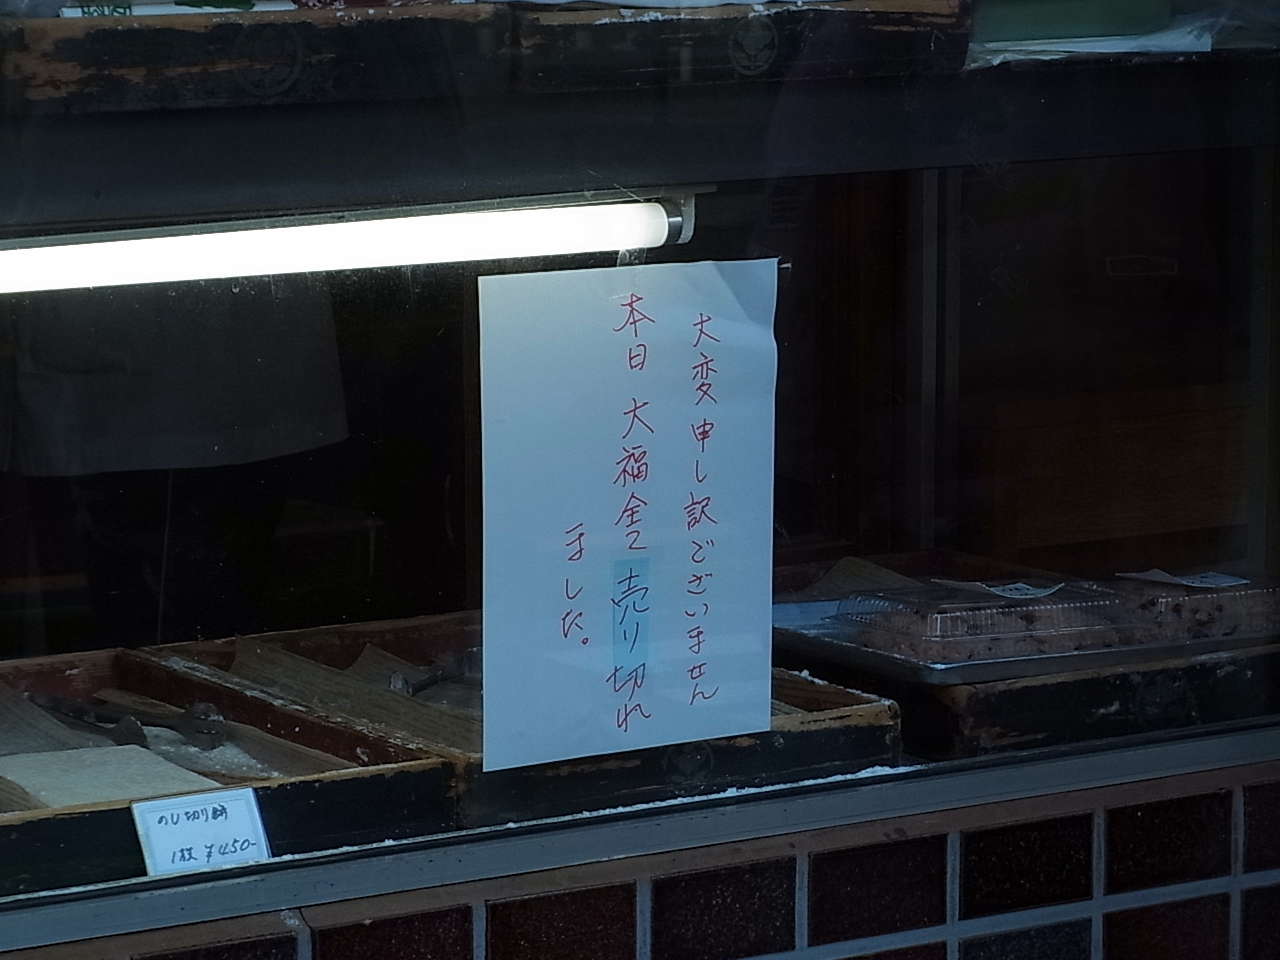 大変申し訳ございません
本日 大福全て売り切れ
ました。
のし切り餅
1枚 ¥450-